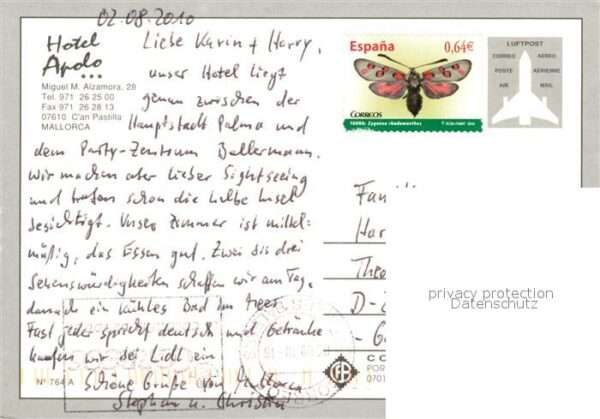 02.08.2010
Hotel
Apolo
Miguel M. Alzamora, 28
Tel. 971 26 25 00
Fax 971 26 28 13
07610 C'an Pastilla
MALLORCA
Liebe Karin + Harry,
unser Hotel liegt
genau zwischen der
Hauptstadt Palma und
dem Party-Zentrum Ballermann.
Wir machen aber lieber Sightseeing
und haben schon die halbe Insel
besichtigt. Unser Zimmer ist mittel=
mäßig, das Essen gut. Zwei bis drei
Sehenswürdigkeiten schaffen wir am Tag,
danach ein kühles Bad im Meer.
Fast jeder spricht deutsch und Getränke
kaufen wir bei Lidl ein
Schöne Grüße von Mallorca
Stephan u. Christa
Nº 764 A
España 0,64€
CORREOS
FAUNA: Zygaena rhadamanthus
LUFTPOST
CORREO AEREO
POSTE AERIENNE
AIR MAIL
Fam
Har
Thee
D-
privacy protection
Datenschutz
CO
POR
0701